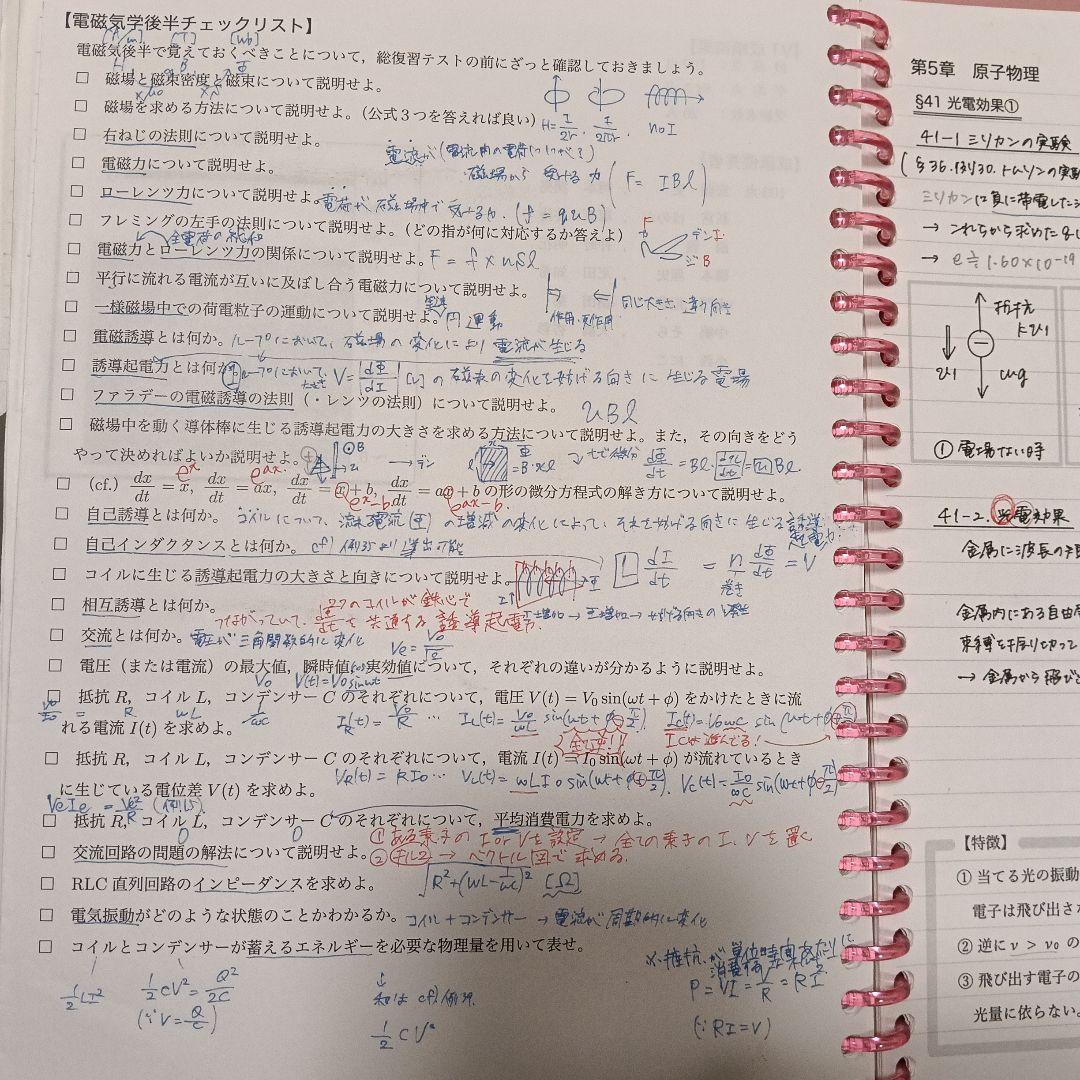 【電磁気学後半チェックリスト】
[A/m] [T] [Wb]
電磁気後半で覚えておくべきことについて，総復習テストの前にざっと確認しておきましょう。
H B Φ
□ 磁場と磁束密度と磁束について説明せよ。
×μ0 ×S
□ 磁場を求める方法について説明せよ。（公式３つを答えれば良い） H= I/2r , I/2πr , n0I
□ 右ねじの法則について説明せよ。
□ 電磁力について説明せよ。 電流が 磁場から 受ける力 (F = IBl)
□ ローレンツ力について説明せよ。 電荷が 磁場中で 受ける力. (f = quB)
□ フレミングの左手の法則について説明せよ。（どの指が何に対応するか答えよ） F デンI ジB
全電荷の総和
□ 電磁力とローレンツ力の関係について説明せよ。 F = f × nSl
□ 平行に流れる電流が互いに及ぼし合う電磁力について説明せよ。 同じ大きさ、違う向き
作用・反作用
□ 一様磁場中での荷電粒子の運動について説明せよ。 円運動
□ 電磁誘導とは何か。 ループにおいて、磁場の変化により電流が生じる
□ 誘導起電力とは何か。 ループにおいて, の磁束の変化を妨げる向きに生じる電場
□ ファラデーの電磁誘導の法則（・レンツの法則）について説明せよ。 uBl
□ 磁場中を動く導体棒に生じる誘導起電力の大きさを求める方法について説明せよ。また，その向きをどう
やって決めればよいか説明せよ。 B → デン Φ = B・xl → tで微分 dΦ/dt = Bl・dx/dt = uBl
□ (cf.) dx/dt = x, dx/dt = ax, dx/dt = x + b, dx/dt = ax + b の形の微分方程式の解き方について説明せよ。
e^x e^ax e^x-b e^ax-b
□ 自己誘導とは何か。 コイルについて、流れる電流(Φ)の増減の変化によって、それを妨げる向きに生じる誘導起電力
□ 自己インダクタンスとは何か。 cf) 例35より導出可能
□ コイルに生じる誘導起電力の大きさと向きについて説明せよ。 L dI/dt = n dΦ/dt = V
巻き
□ 相互誘導とは何か。 2つのコイルが鉄心で
つながっていて、dΦ/dtを共通する誘導起電力.
□ 交流とは何か。 電圧が三角関数的に変化 Ve = V0/√2
□ 電圧（または電流）の最大値，瞬時値，実効値について，それぞれの違いが分かるように説明せよ。
V0 V(t) = V0 sinωt
□ 抵抗 R，コイル L，コンデンサー C のそれぞれについて，電圧 V(t) = V0 sin(ωt + φ) をかけたときに流
R ωL 1/ωC
れる電流 I(t) を求めよ。 IR(t) = V0/R … IL(t) = V0/ωL sin(ωt+φ-π/2) Ic(t) = V0ωC sin(ωt+φ+π/2)
全て逆! Icは進んでる!
□ 抵抗 R，コイル L，コンデンサー C のそれぞれについて，電流 I(t) = I0 sin(ωt + φ) が流れているとき
に生じている電位差 V(t) を求めよ。 VR(t) = RI0… VL(t) = ωLI0 sin(ωt+φ+π/2). Vc(t) = I0/ωC sin(ωt+φ-π/2)
VeIe = Ve²/R
□ 抵抗 R，コイル L，コンデンサー C のそれぞれについて，平均消費電力を求めよ。
0 0 ①ある素子の I or Vを設定 → 全ての素子の I、Vを置く
□ 交流回路の問題の解法について説明せよ。 ②キル2 → ベクトル図で求める.
□ RLC 直列回路のインピーダンスを求めよ。 √R²+(ωL-1/ωC)² [Ω]
□ 電気振動がどのような状態のことかわかるか。 コイル + コンデンサー → 電流が周期的に変化
□ コイルとコンデンサーが蓄えるエネルギーを必要な物理量を用いて表せ。
1/2 LI² 1/2 CV² = Q²/2C
(∵ V = Q/C)
1/2 CV²
P = VI = V²/R = RI²
(∵ RI = V)
第5章 原子物理
§41 光電効果①
41-1 ミリカンの実験
(§36. 例30. トムソンの実
ミリカンは負に帯電した
→ これらから求めた
→ e ≒ 1.60×10^-19
抵抗
mg
① 電場ない時
41-2. 光電効果
金属に波長の
金属内にある自由
束縛を振り切って
→ 金属から飛び
【特徴】
① 当てる光の振動
電子は飛び出さ
② 逆に ν > ν0 の
③ 飛び出す電子の
光量に依らない。